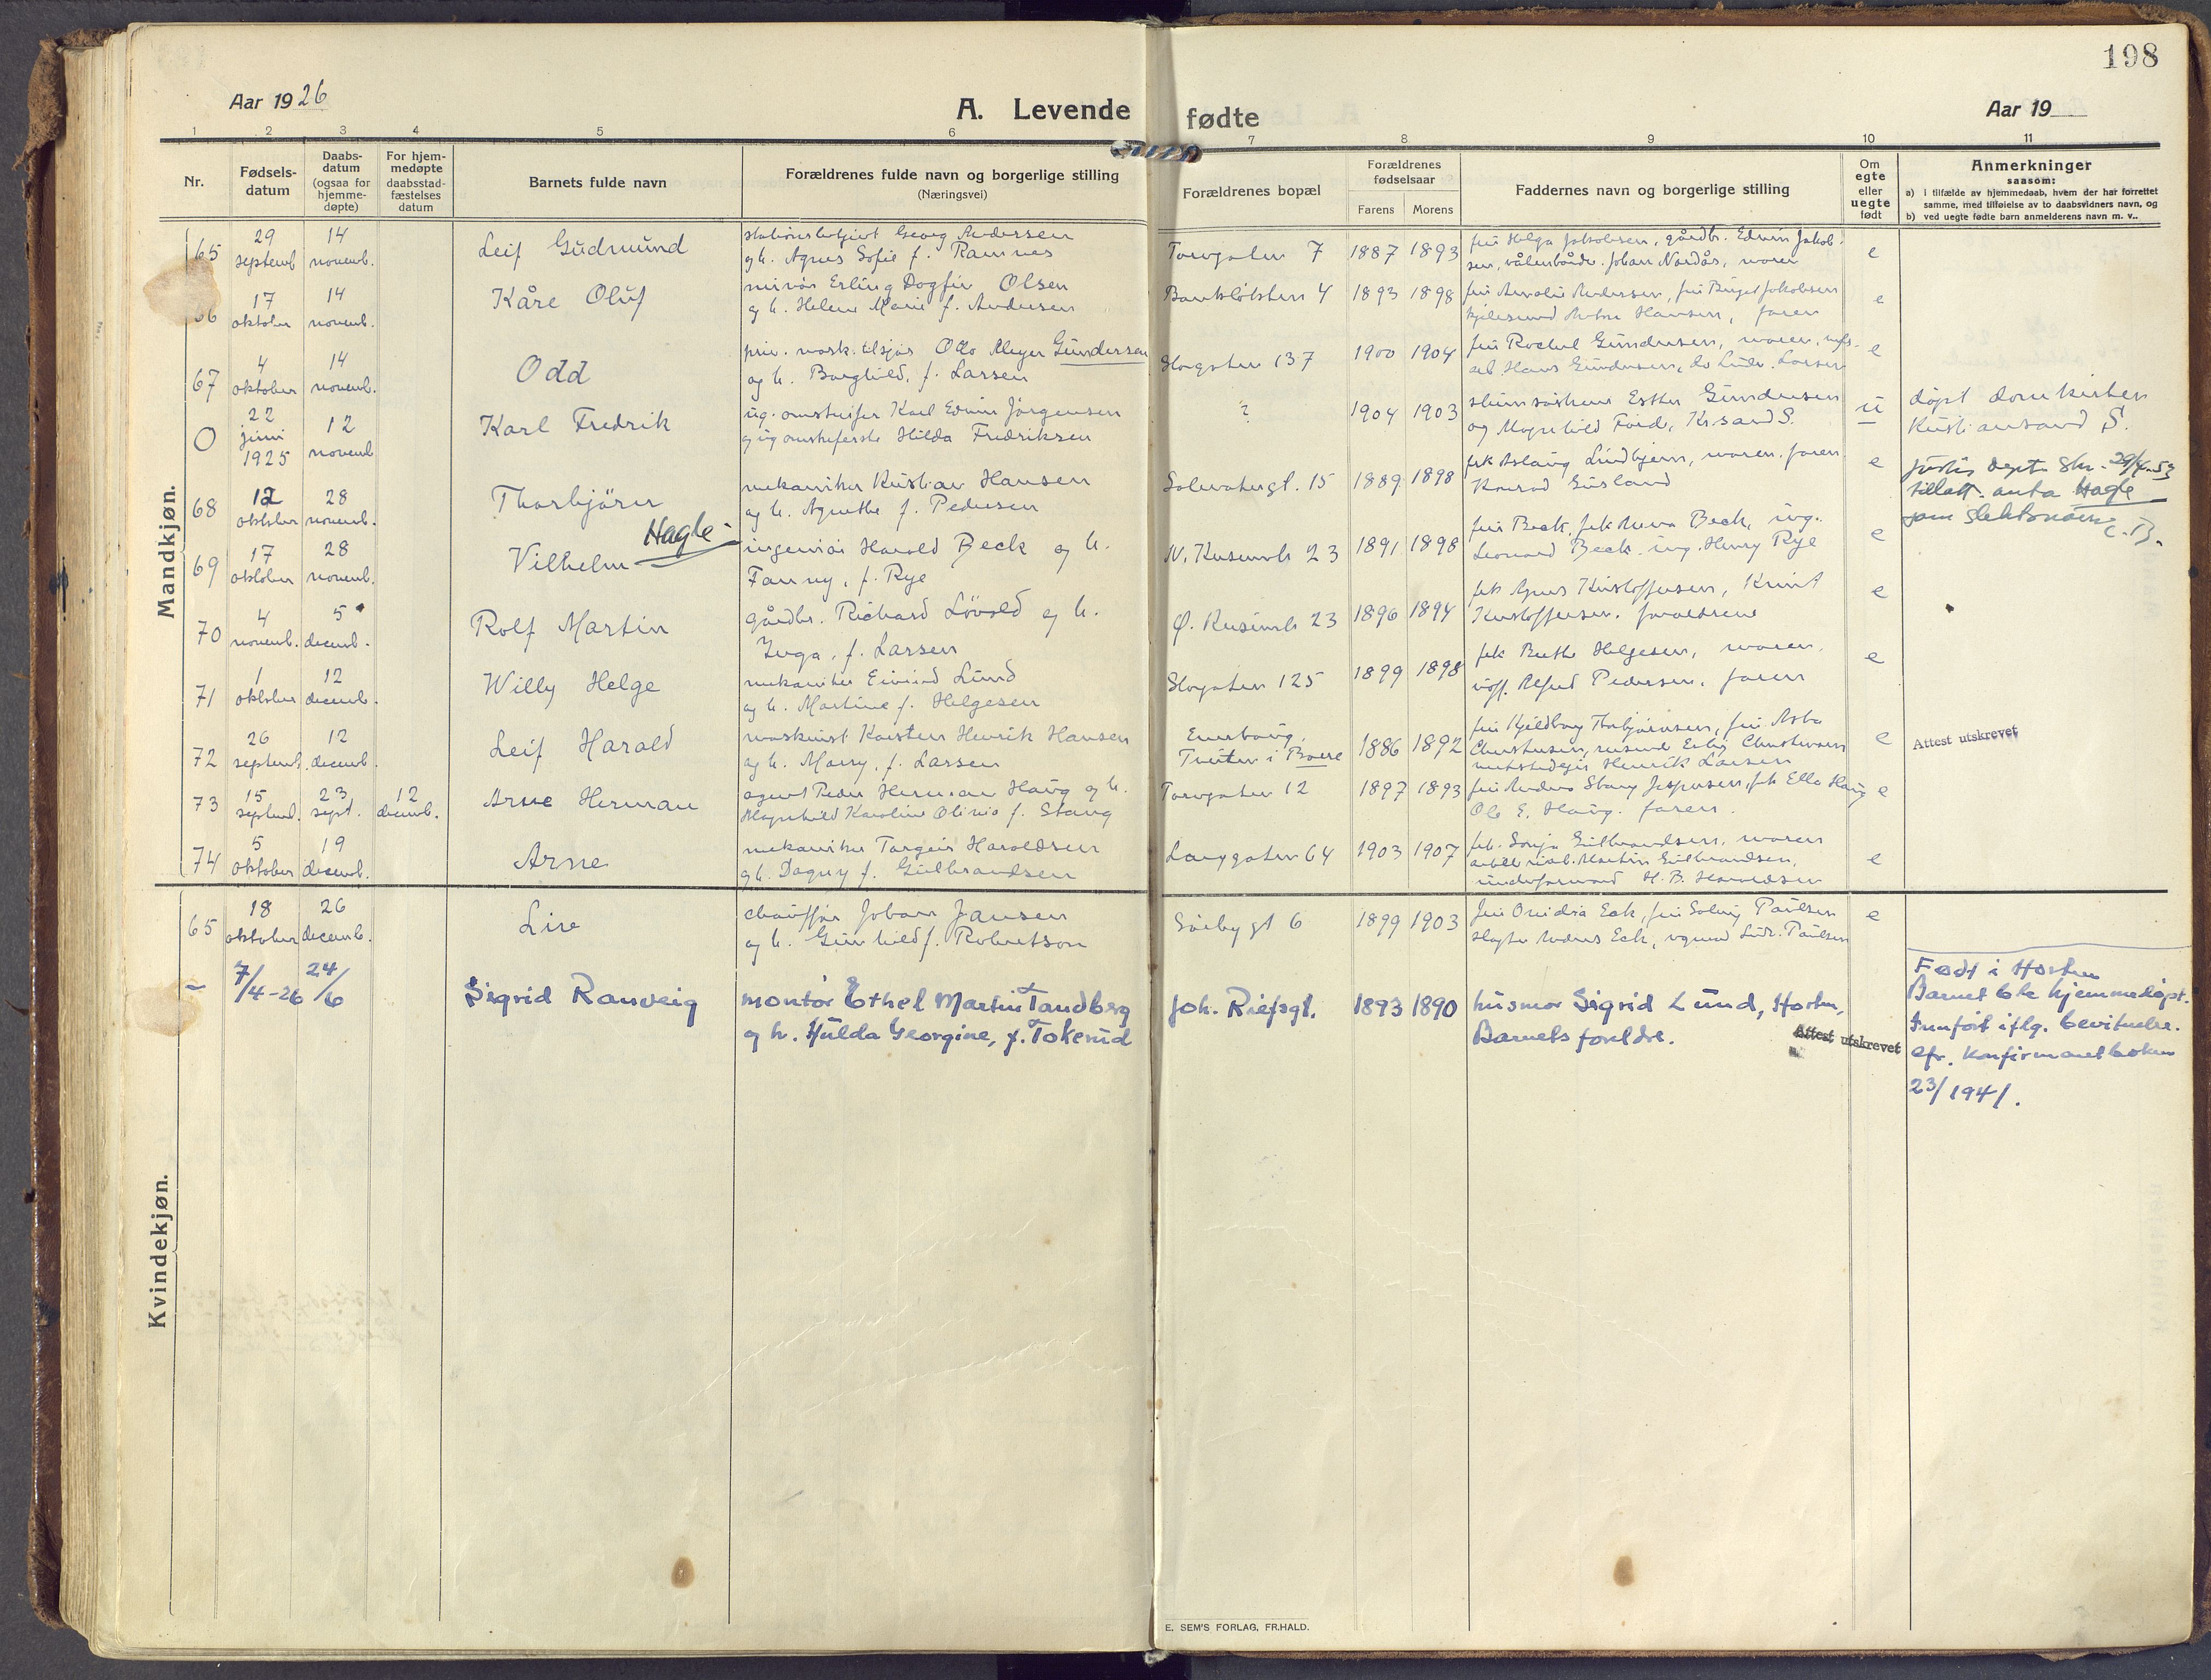 198
Aar 1926
A. Levende fødte
Aar 19
1 2 3 4 5 6 7 8 9 10 11
Nr.
Fødsels-
datum
Daabs-
datum
(ogsaa for
hjemme-
døpte)
For hjem-
medøpte
daabsstad-
fæstelses
datum
Barnets fulde navn
Forældrenes fulde navn og borgerlige stilling
(Næringsvei)
Forældrenes bopæl
Forældrenes
fødselsaar
Farens Morens
Faddernes navn og borgerlige stilling
Om
egte
eller
uegte
født
Anmerkninger
saasom:
a) i tilfælde av hjemmedaab, hvem der har forrettet
samme, med tilføielse av to daabsvidners navn, og
b) ved uegte fødte barn anmelderens navn m. v..
Mandkjøn.
65
29 septemb.
14 novemb.
Leif Gudmund
Georg Andersen
og h. Agnes Sofie f. Ramnes
Torvgaten 7
1887 1893
fru Helga Jakobsen, gårdbr. Edwin Jakob-
sen, Johan Nordås, moren
e
66
17 oktober
14 novemb.
Kåre Oluf
minør Erling Dagfin Olsen
og h. Helene Marie f. Andersen
Bankløkken 4
1893 1898
fru Amalie Andersen, fru Birgit Jakobsen
Hansen, faren
e
67
4 oktober
14 novemb.
Odd
Otto Meyer Gundersen
og h. Borghild, f. Larsen
Storgaten 137
1900 1904
fru Rachel Gundersen, moren,
arb. Hans Gundersen, do Ludv. Larsen
e
0
22 juni 1925
12 novemb
Karl Fredrik
ug. Karl Edvin Jörgensen
og ug. Hilda Fredriksen
?
1904 1903
Esther Gundersen
og Magnhild Kr.sand S.
u
døpt domkirken
Kristiansand S.
68
12 oktober
28 novemb.
Thorbjörn
mekaniker Kristian Hansen
og h. Agnethe f. Pedersen
15
1889 1898
frk Aslaug Lindbjern, moren, faren
Konrad
e
justis dept. skr. 29/4-53
tillatt. anta Hagle
som slektsnavn
69
17 oktober
28 novemb.
Vilhelm Hagle
ingeniør Harald Beck og h.
Fanny, f. Rye
23
1891 1898
fru Beck, frk Beck, ing.
Leonard Beck. ing. Henry Rye
e
70
4 novemb.
5 decemb.
Rolf Martin
gårdbr. Richard Lövold og h.
Inga, f. Larsen
23
1896 1894
frk Agnes Kristoffersen, Knut
Kristoffersen. foreldrene
e
71
1 oktober
12 decemb.
Willy Helge
mekaniker Eivind Lund
og h. Martine f. Helgesen
Storgaten 125
1899 1898
frk Helgesen, moren,
Alfred Pedersen. faren
e
72
26 septemb.
12 decemb.
Leif Harald
maskinist Karsten Henrik Hansen
og h. Marry, f. Larsen
i Borre
1886 1892
fru Thorbjørnsen, fru Asta
Henrik Larsen
e
Attest utskrevet
73
15 septemb.
23 sept.
12 decemb.
Arne Herman
agent Peder Herman Haug og h.
Magnhild Karoline Olivia f. Stang
Torvgaten 12
1897 1893
fru Stang Jespersen, frk Ella Haug
Ole E. Haug. faren.
e
74
5 oktober
19 decemb.
Arne
mekaniker Torgeir Haraldsen
og h. Dagny f. Gulbrandsen
Langgaten 64
1903 1907
frk. Sonja Gulbrandsen, moren
Martin Gulbrandsen,
H. B. Haraldsen
e
Kvindekjøn.
65
18 oktober
26 decemb.
Lise
chauffør Johan Jansen
og h. Gunhild f. Robertson
6
1899 1903
fru Eek, fru Solveig Paulsen
Anders Eek, Ludv. Paulsen
e
–
7/4-26
24/6
Sigrid Ranveig
montör Othel Martin Tandberg
og h. Hulda Georgine, f. Tokerud
Joh. Riefsgt.
1893 1890
husmor Sigrid Lund, Horten,
Barnets foreldre.
Attest utskrevet
Født i Horten
Barnet ble hjemmedøpt.
Innført iflg. bevitnelse.
cfr. konfirmantboken
23/1941.
E. SEM'S FORLAG, FR.HALD.